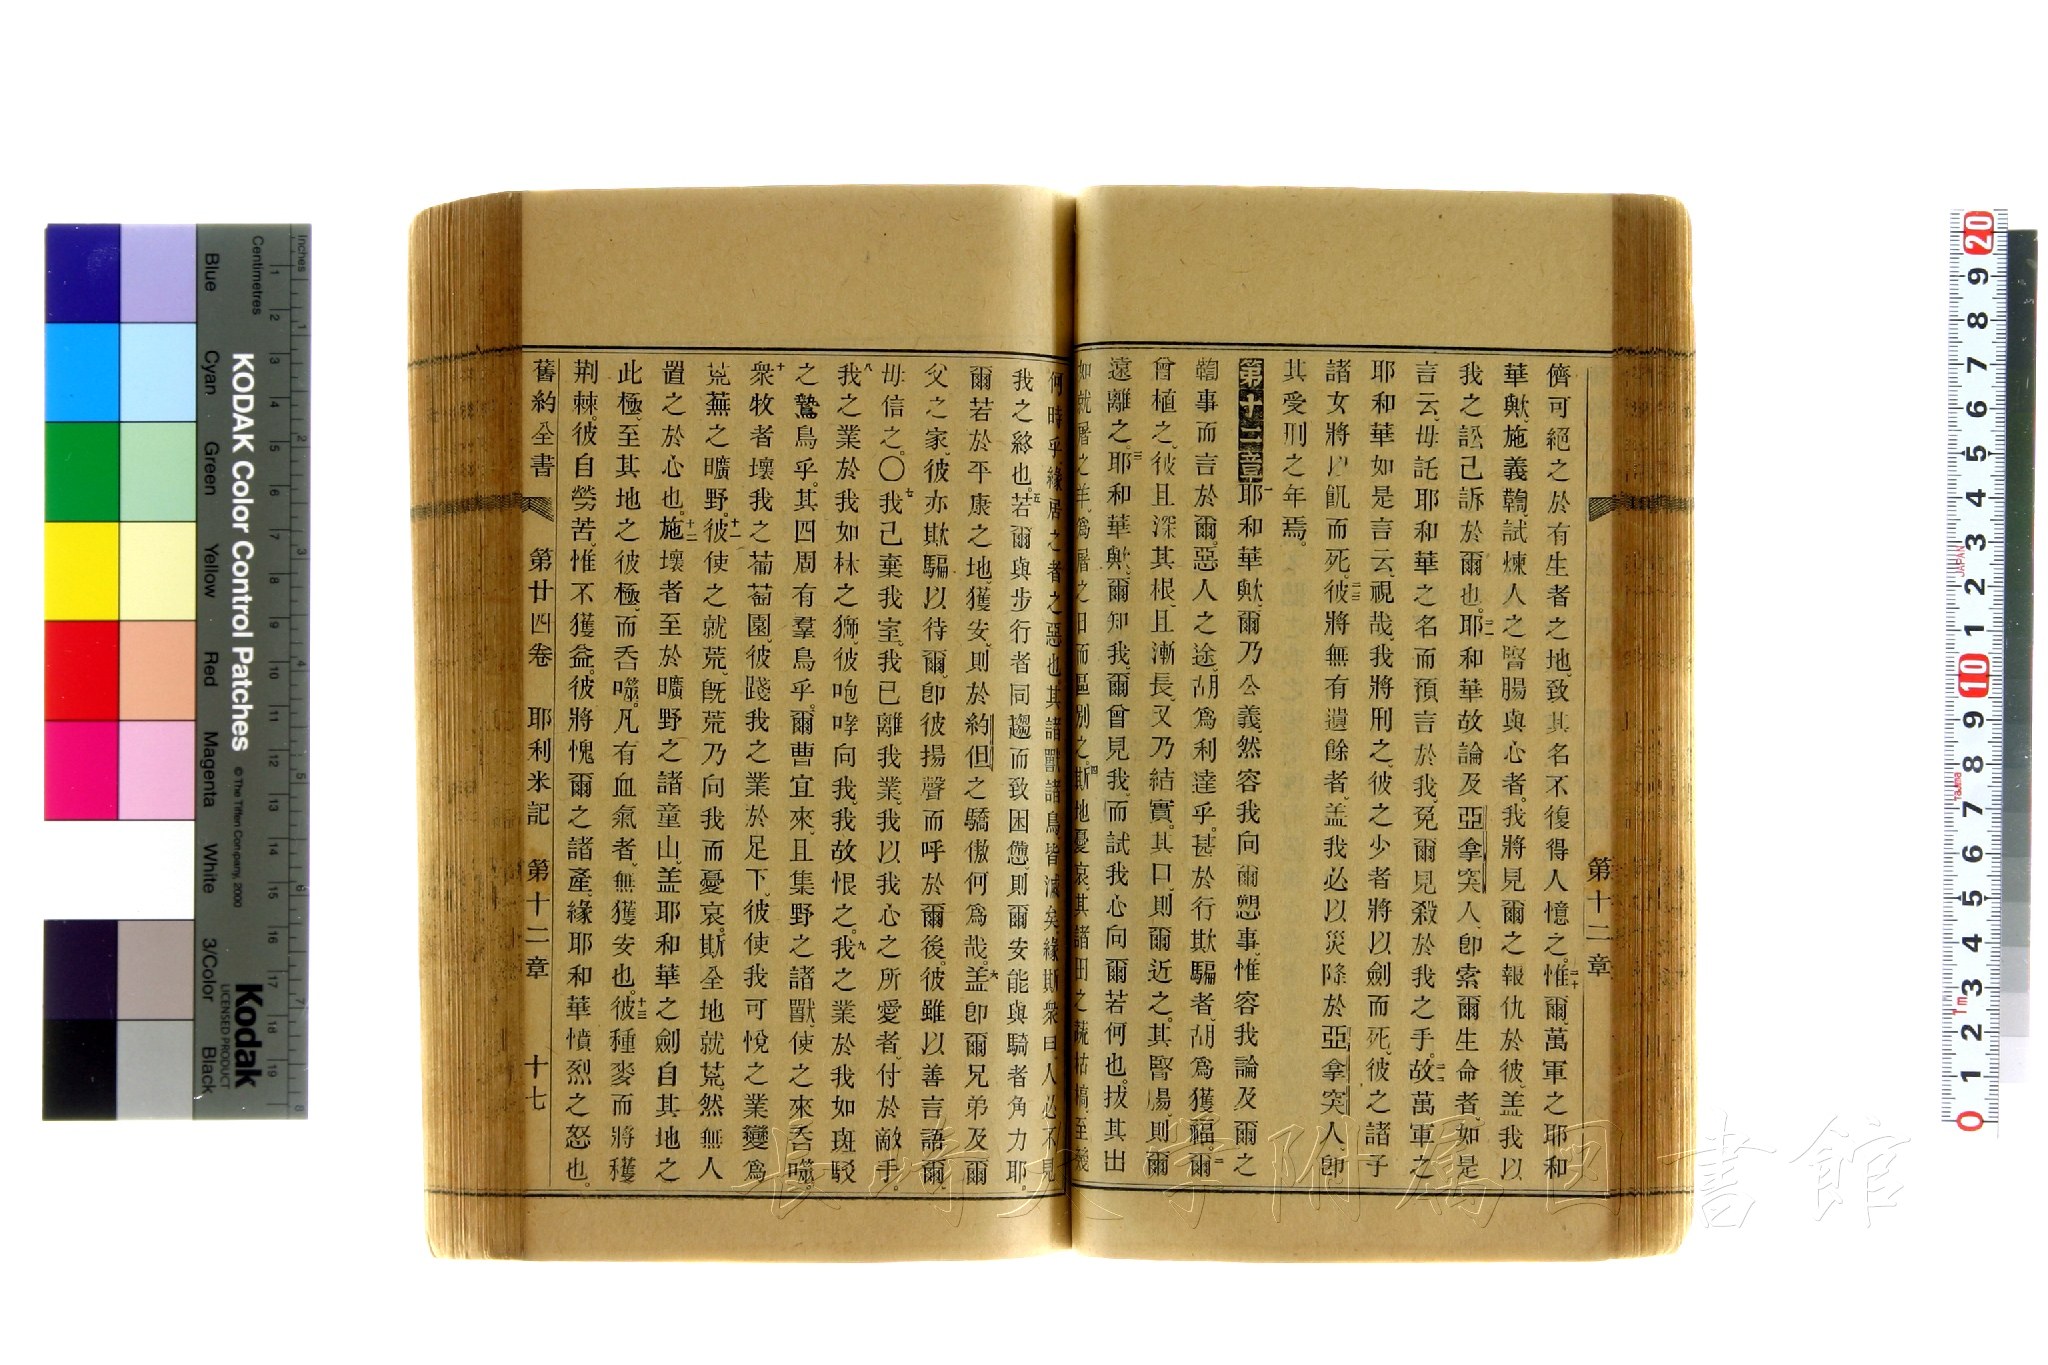 第十二章
儕可絕之於有生者之地、致其名不復得人憶之。二十惟爾、萬軍之耶和
華歟、施義鞫、試煉人之腎腸與心者、我將見爾之報仇於彼、盖我以
我之訟己訴於爾也。二一耶和華故論及亞拿突人、卽索爾生命者、如是
言云、毋託耶和華之名而預言於我、免爾見殺於我之手。二二故萬軍之
耶和華如是言云、視哉、我將刑之、彼之少者將以劍而死、彼之諸子
諸女將以飢而死。二三彼將無有遺餘者、盖我必以災降於亞拿突人、卽
其受刑之年焉。
第十二章一耶和華歟、爾乃公義、然容我向爾愬事、惟容我論及爾之
鞫事而言於爾、惡人之途、胡爲利達乎。甚於行欺騙者、胡爲獲福。二爾
曾植之、彼且深其根、且漸長、又乃結實。其口則爾近之、其腎腸、則爾
遠離之。三耶和華歟、爾知我、爾曾見我、而試我心向爾若何也。拔其出
如就屠之羊、爲屠之日而區別之。四斯地憂哀、其諸田之蔬枯槁、至幾
何時乎、緣居之者之惡也、其諸獸諸鳥皆滅矣、緣斯衆曰、人必不見
我之終也。五若爾與步行者同趨而致困憊、則爾安能與騎者角力耶。
爾若於平康之地獲安、則於約但之驕傲何爲哉。六盖卽爾兄弟及爾
父之家、彼亦欺騙以待爾、卽彼揚聲而呼於爾後。彼雖以善言語爾、
毋信之。〇七我己棄我室、我已離我業、我以我心之所愛者、付於敵手。
八我之業於我如林之獅、彼咆哮向我、我故恨之。九我之業於我如斑駁
之鷙鳥乎。其四周有羣鳥乎。爾曹宜來、且集野之諸獸、使之來吞噬。
十衆牧者壞我之葡萄園、彼踐我之業於足下、彼使我可悅之業變爲
荒蕪之曠野。十一彼使之就荒、旣荒乃向我而憂哀。斯全地就荒。然無人
置之於心也。十二施壞者至於曠野之諸童山、盖耶和華之劍自其地之
此極、至其地之彼極、而吞噬。凡有血氣者、無獲安也。十三彼種麥而將穫
荆棘。彼自勞苦、惟不獲益。彼將愧爾之諸產、緣耶和華憤烈之怒也。
舊約全書 第廿四卷 耶利米記 第十二章 十七
長崎大学附属図書館
KODAK Color Control Patches
© The Tiffen Company, 2000
Kodak
LICENSED PRODUCT
Inches
Centimetres
Blue Cyan Green Yellow Red Magenta White 3/Color Black
1 2 3 4 5 6 7 8 9 10 11 12 13 14 15 16 17 18 19
1 2 3 4 5 6 7 8
20 9 8 7 6 5 4 3 2 1 10 9 8 7 6 5 4 3 2 1 0
JAPAN